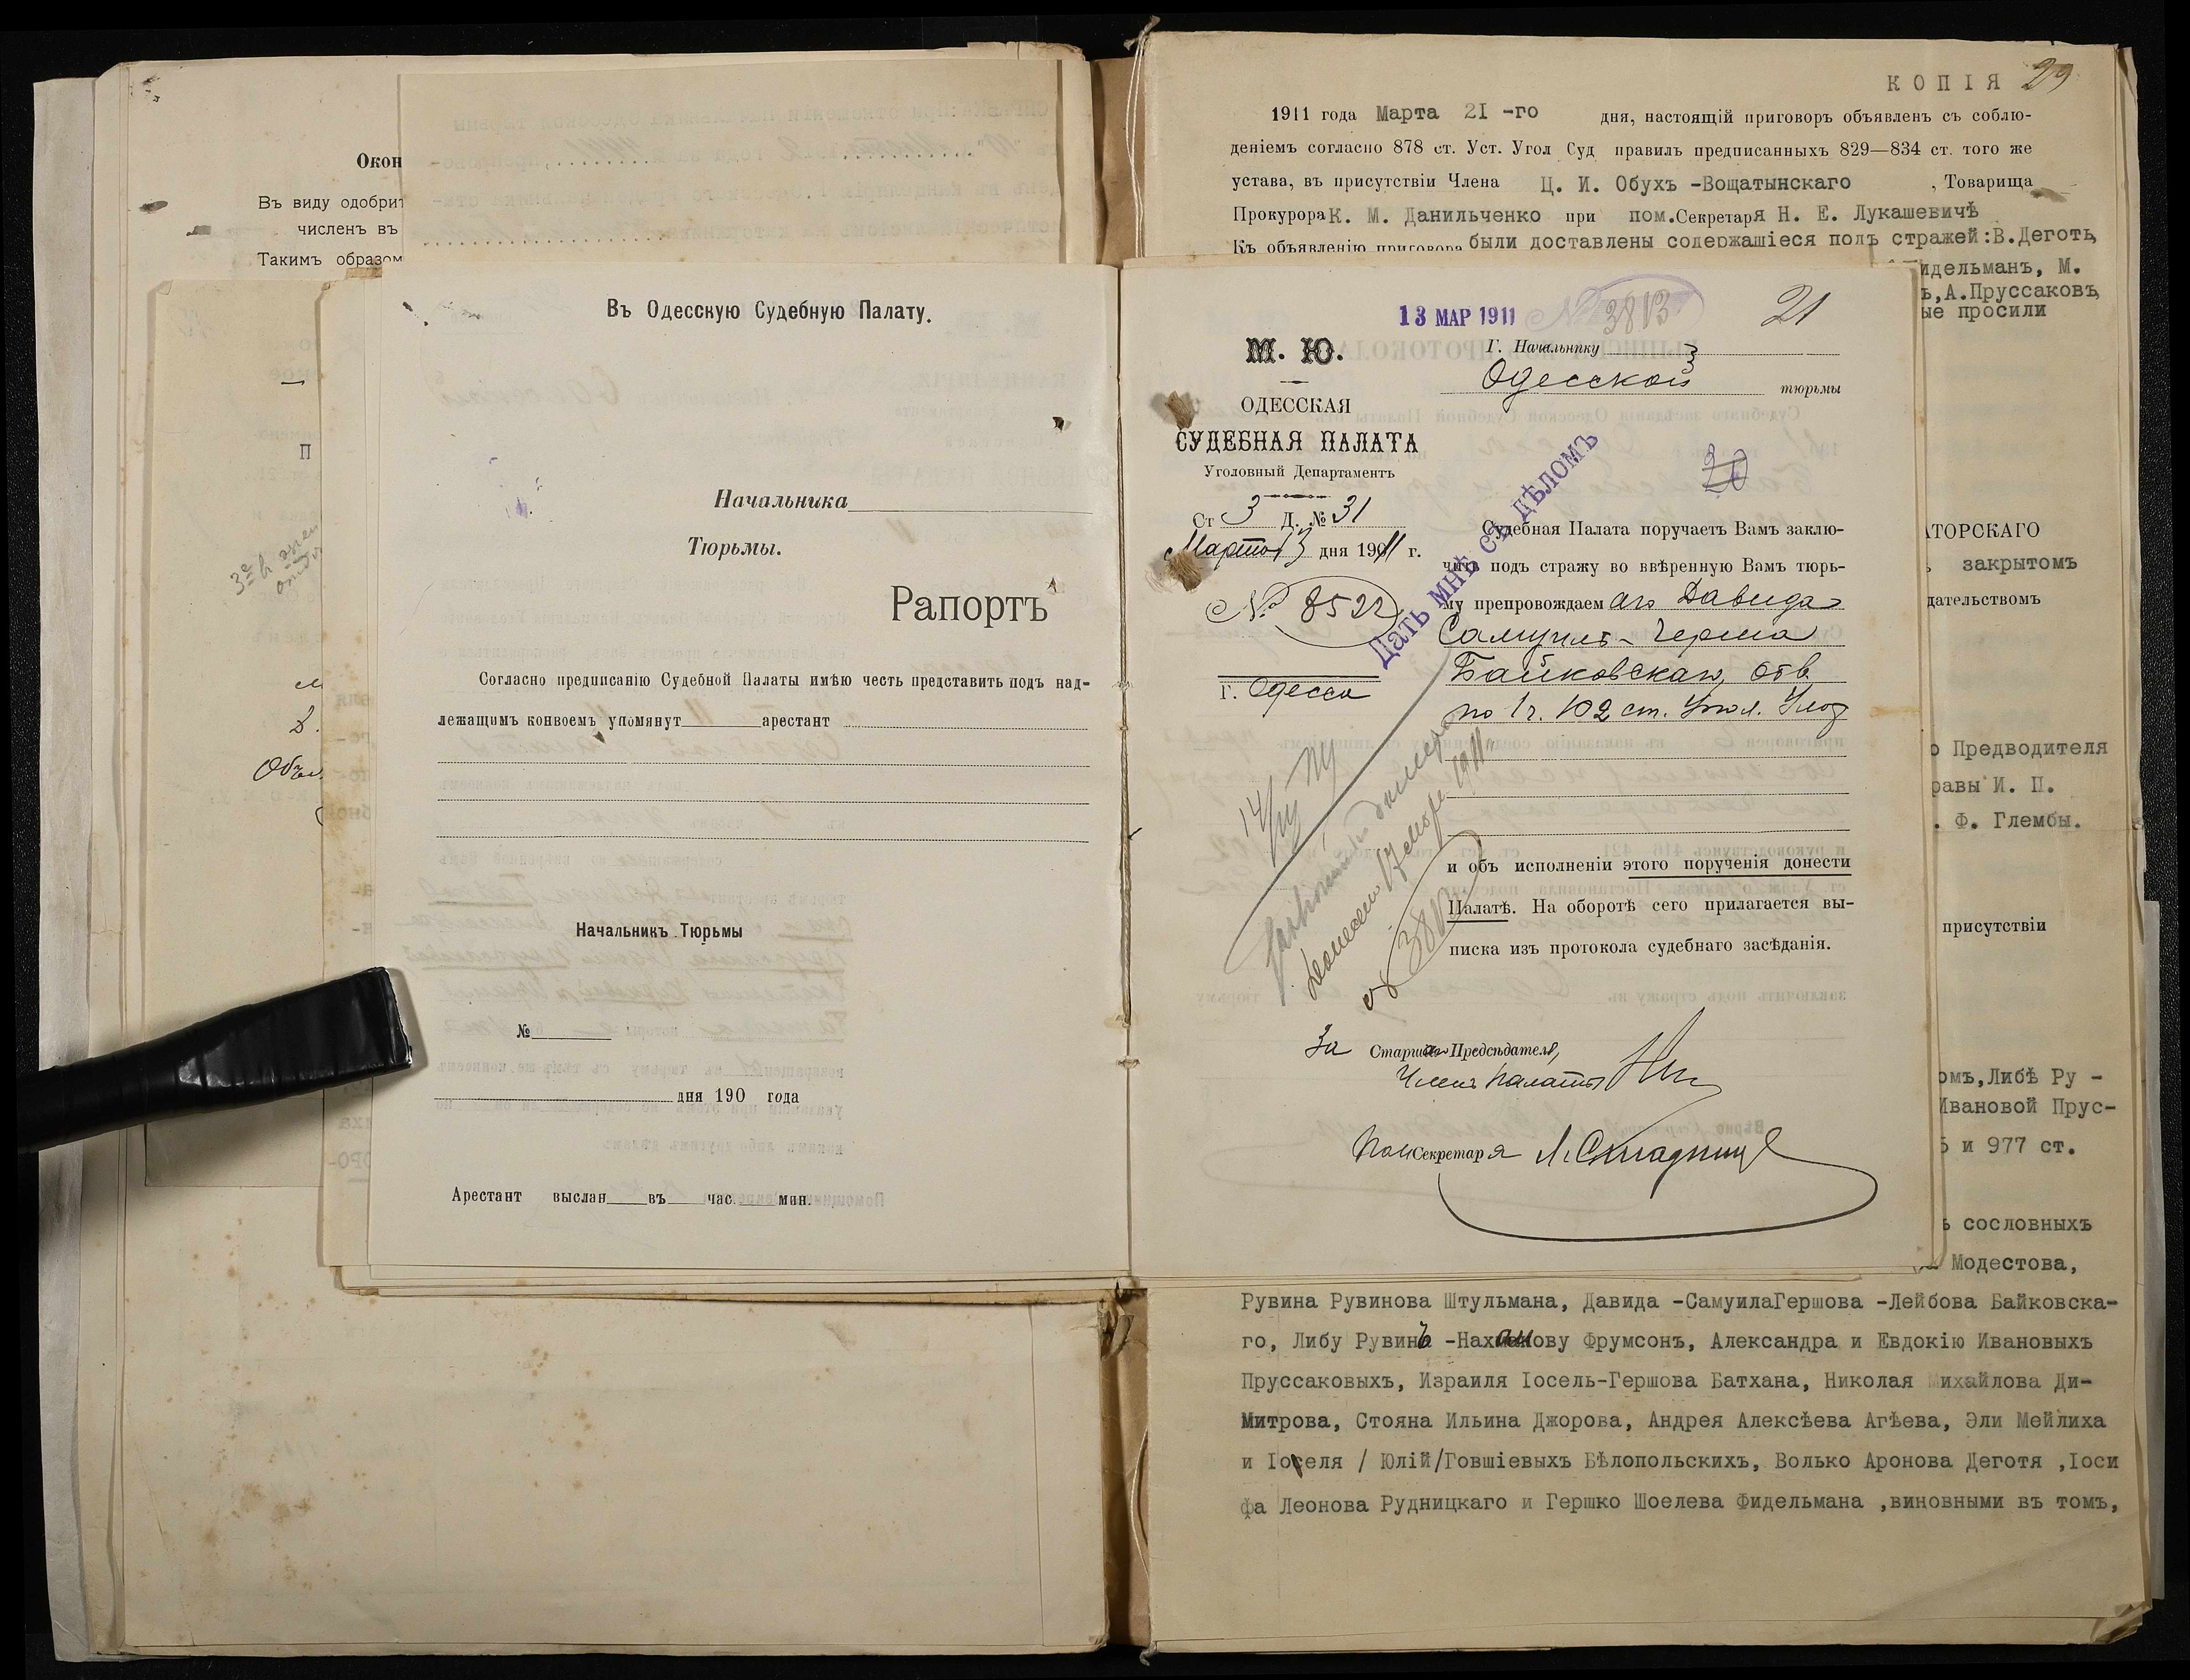 Окон
Въ виду одобрит
численъ въ
Такимъ образом
П
Въ Одесскую Судебную Палату.
Начальника
Тюрьмы.
Рапортъ
Согласно предписанію Судебной Палаты имѣю честь представить подъ над-
лежащимъ конвоемъ упомянут арестант
Начальникъ Тюрьмы
№
дня 190 года
Арестант выслан въ час. мин.
КОПІЯ 29
1911 года Марта 21 -го дня, настоящій приговоръ объявленъ съ соблю-
деніемъ согласно 878 ст. Уст. Угол Суд правилъ предписанныхъ 829—834 ст. того же
устава, въ присутствіи Члена Ц. И. Обухъ -Вощатынскаго , Товарища
Прокурора К. М. Данильченко при пом.Секретаря Н. Е. Лукашевичѣ
Къ объявленію приговора были доставлены содержащіеся подъ стражей:В.Деготь,
идельманъ, М.
ъ,А.Пруссаковъ,
ые просили
13 МАР 1911 № 3813 21
М. Ю.
ОДЕССКАЯ
СУДЕБНАЯ ПАЛАТА
Уголовный Департаментъ
Ст 3 Д. № 31
Марта 13 дня 1911 г.
№ 8522
г. Одесса
Г. Начальнику
Одесской тюрьмы
20
Дать мнѣ съ дѣломъ
Судебная Палата поручаетъ Вамъ заклю-
чить подъ стражу во ввѣренную Вамъ тюрь-
му препровождаемаго Давида
Самуилъ-Герша
Байковскаго, обв.
по 1 ч. 102 ст. Угол. Улож
14/III
Донесено 17 Марта 1911 г.
№ 3813
и объ исполненіи этого порученія донести
Палатѣ. На оборотѣ сего прилагается вы-
писка изъ протокола судебнаго засѣданія.
За Старшаго Предсѣдателя,
Членъ Палаты
Пом Секретаря
АТОРСКАГО
закрытомъ
дательствомъ
о Предводителя
равы И. П.
. Ф. Глембы.
присутствіи
омъ,Либѣ Ру -
Ивановой Прус-
5 и 977 ст.
ъ сословныхъ
Модестова,
Рувина Рувинова Штульмана, Давида -СамуилаГершова -Лейбова Байковска-
го, Либу Рувинъ -Нахманову Фрумсонъ, Александра и Евдокію Ивановыхъ
Пруссаковыхъ, Израиля Іосель-Гершова Батхана, Николая Михайлова Ди-
Митрова, Стояна Ильина Джорова, Андрея Алексѣева Агѣева, Эли Мейлиха
и Іоселя / Юлій/Говшіевыхъ Бѣлопольскихъ, Волько Аронова Деготя ,Іоси
фа Леонова Рудницкаго и Гершко Шоелева Фидельмана ,виновными въ томъ,